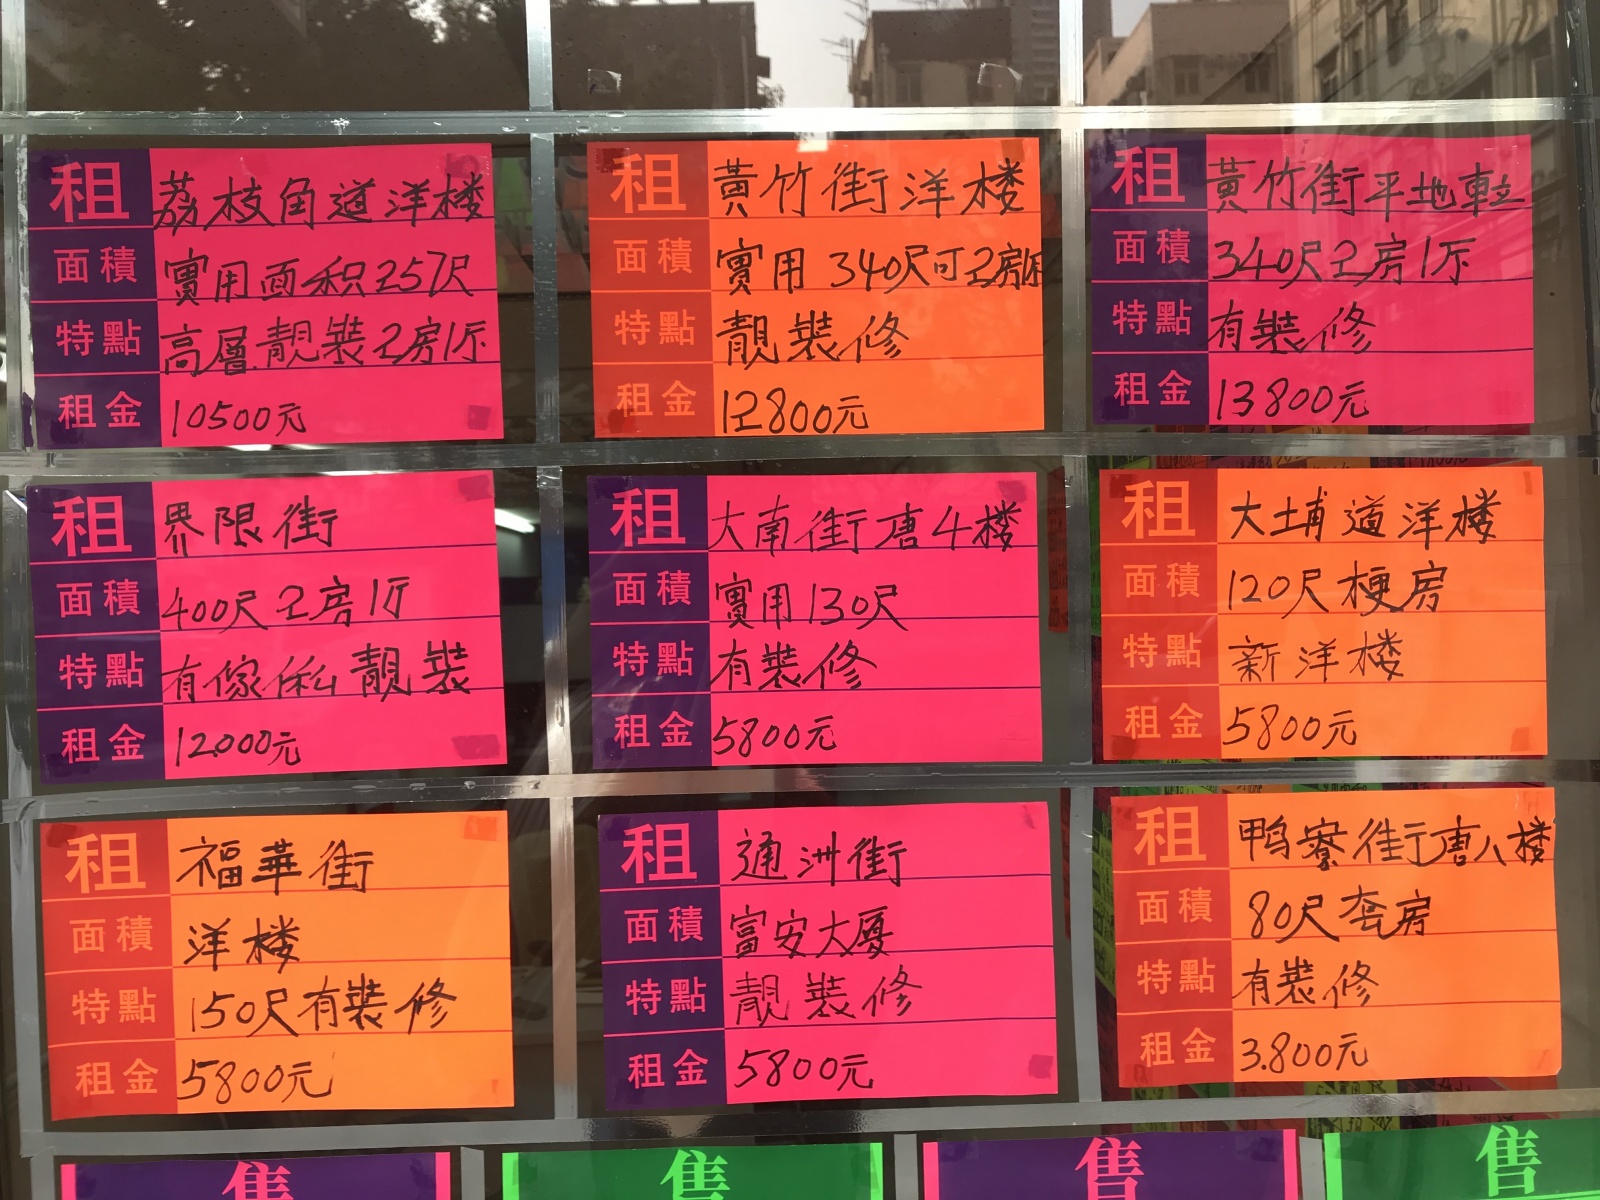 租 荔枝角道洋楼
面積 實用面积257尺
特點 高層靚裝2房1厅
租金 10500元
租 黃竹街洋楼
面積 實用340尺可2房
特點 靚裝修
租金 12800元
租 黃竹街平地
面積 340尺2房1厅
特點 有裝修
租金 13800元
租 界限街
面積 400尺2房1厅
特點 有傢俬靚裝
租金 12000元
租 大南街唐4楼
面積 實用130尺
特點 有裝修
租金 5800元
租 大埔道洋楼
面積 120尺梗房
特點 新洋楼
租金 5800元
租 福華街
面積 洋楼
特點 150尺有裝修
租金 5800元
租 通洲街
面積 富安大厦
特點 靚裝修
租金 5800元
租 鸭寮街唐八楼
面積 80尺套房
特點 有裝修
租金 3.800元
售
售
售
售